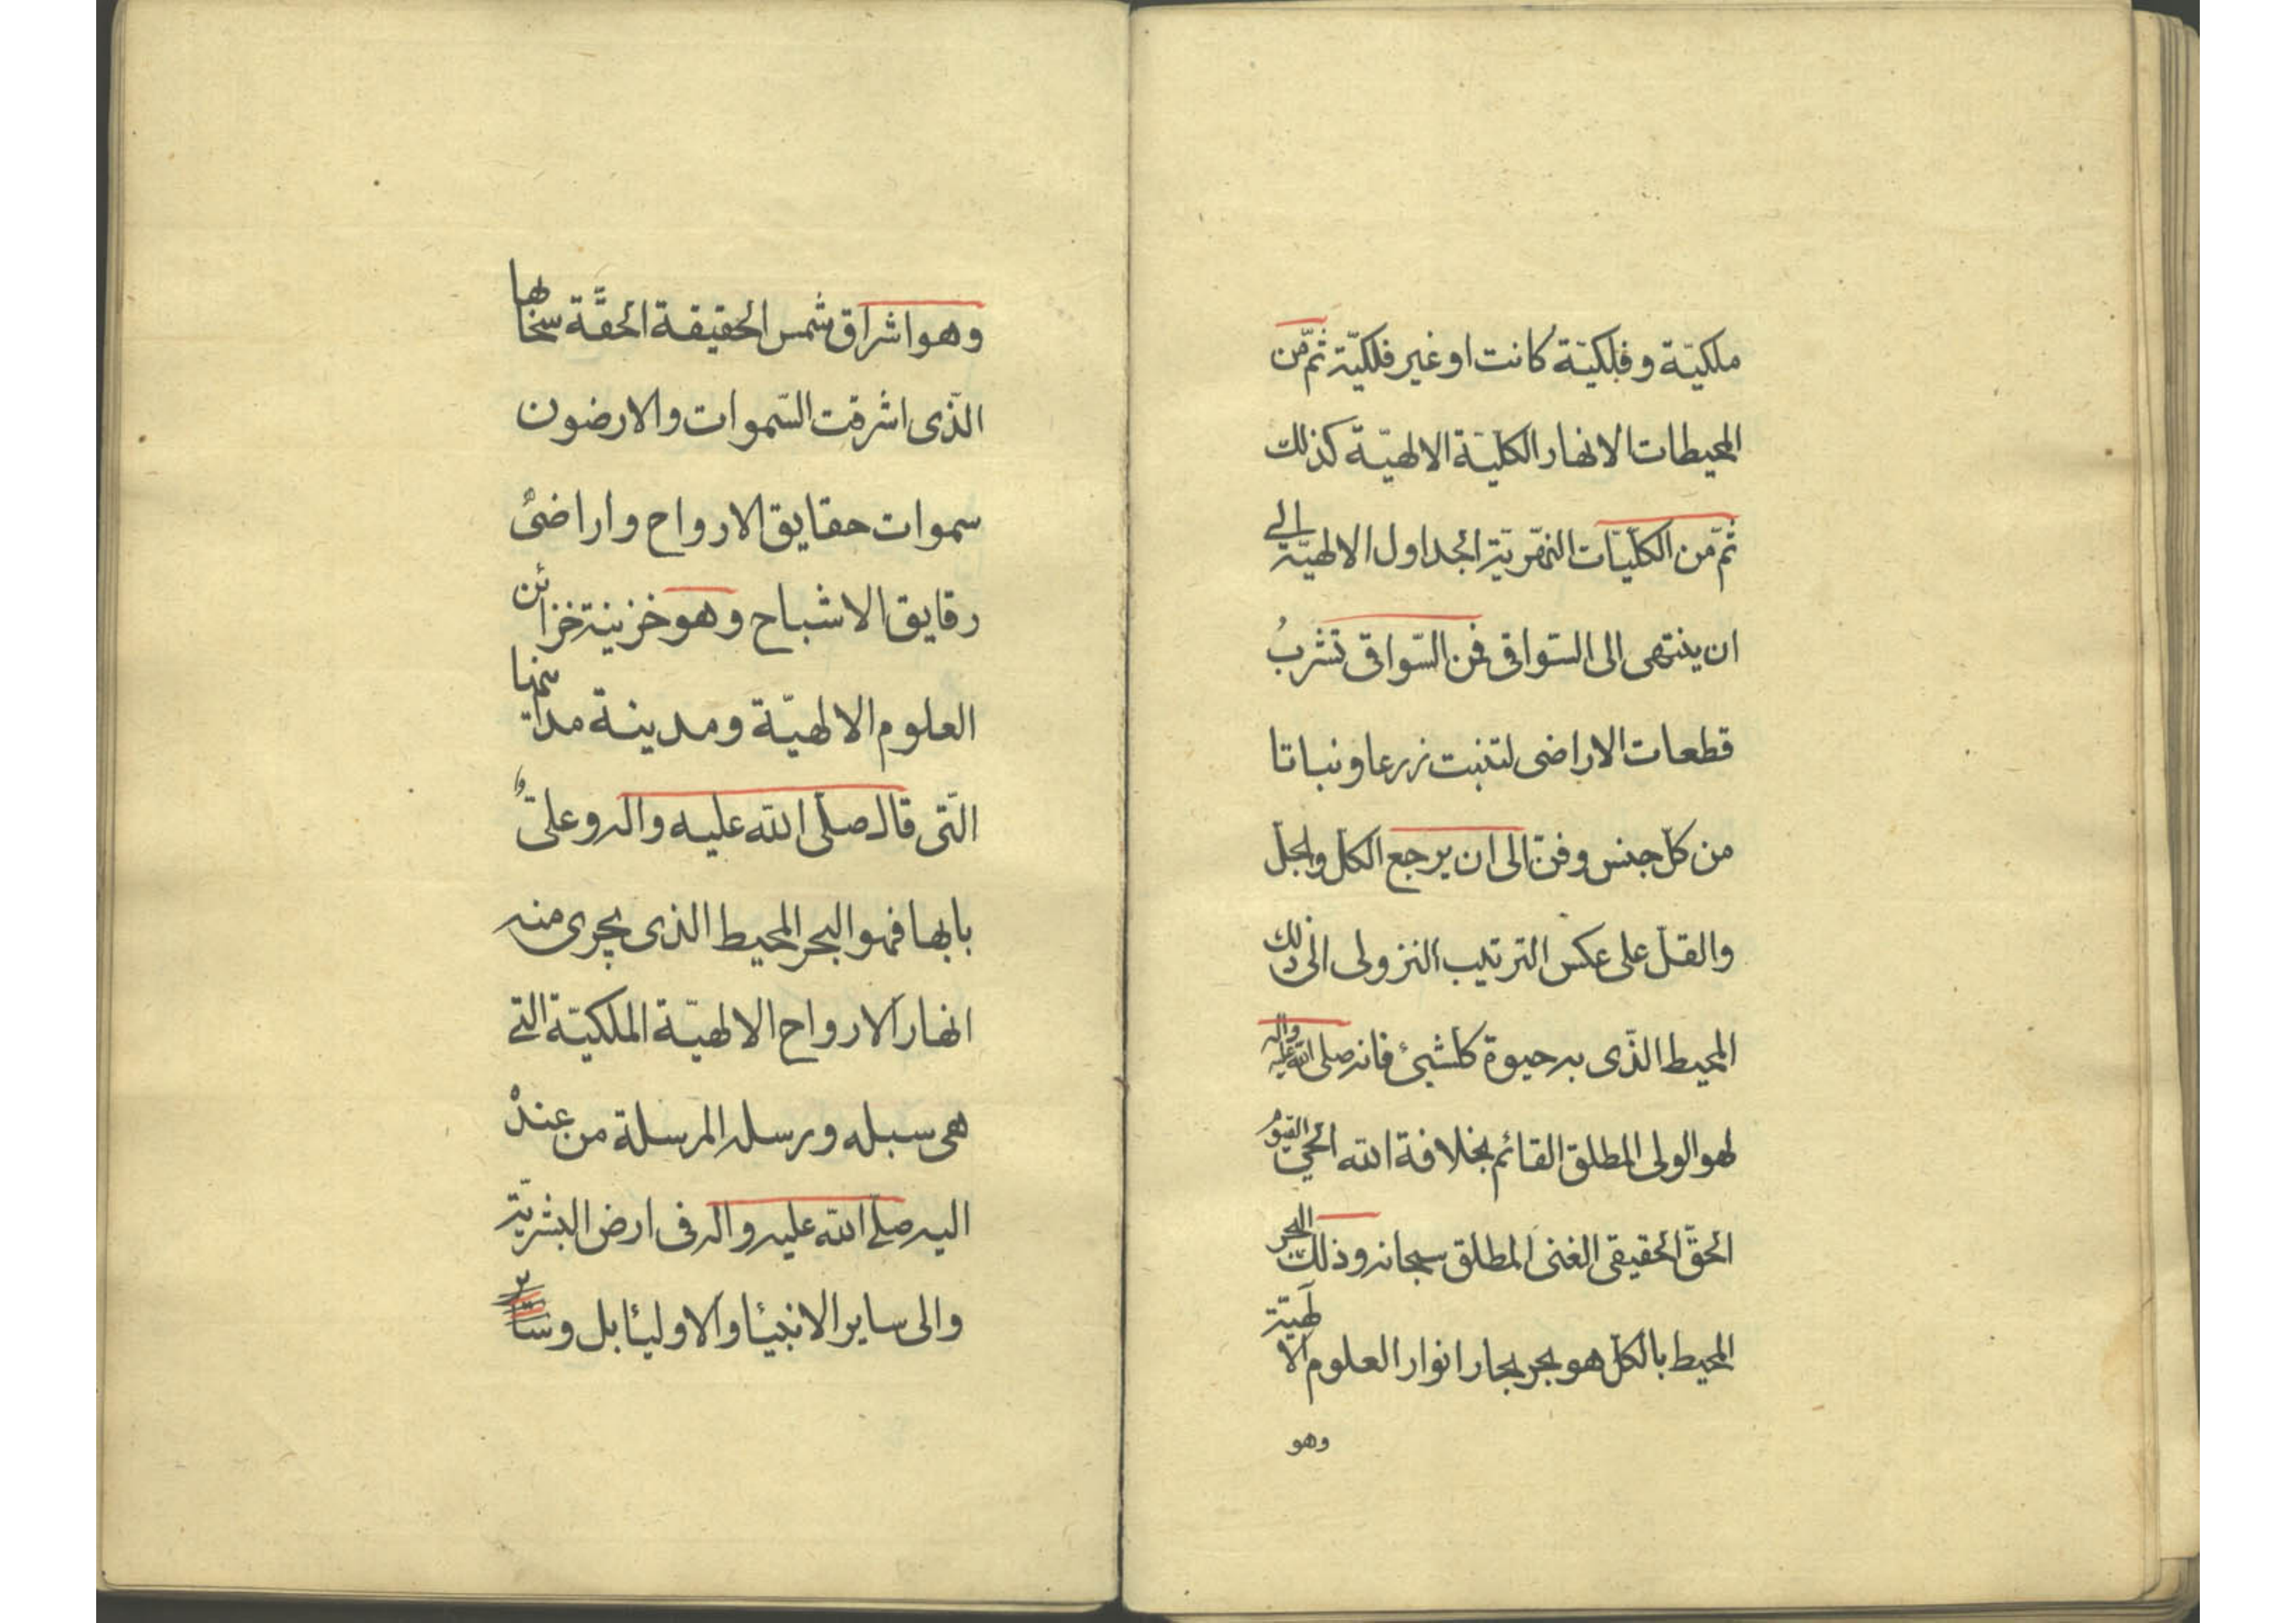 ملكيّة وفلكيّة كانت او غير فلكيّة ثمّ من
المحيطات الانهار الكليّة الالهيّة كذلك
ثمّ من الكليّات النهريّة الجداول الالهيّة الى
ان ينتهى الى السّواقى فمن السّواقى تشربُ
قطعات الاراضى لتنبت زرعا ونباتا
من كلّ جنس وفنّ الى ان يرجع الكلّ والجلّ
والقلّ على عكس الترتيب النزولى الى ذلك
المحيط الذّى به حيوة كلشىء فانه صلى الله عليه واله
لهو الولى المطلق القائم بخلافة الله الحىّ القيّوم
الحقّ الحقيقى الغنى المطلق سبحانه وذلك البحر
المحيط بالكلّ هو بحر بحار انوار العلوم الالهيّة
وهو
وهو اشراق شمس الحقيقة الحقّة
الذّى اشرقت السّموات والارضون
سموات حقايق الارواح واراضى
رقايق الاشباح وهو خزينة خزائن
العلوم الالهيّة ومدينة
الّتى قال صلّى الله عليه واله وعلىّ
بابها فهو البحر المحيط الذى يجرى منه
انهار الارواح الالهيّة الملكيّة التى
هى سبله ورسله المرسلة من عنده
اليه صلّى الله عليه واله فى ارض البشريّة
والى ساير الانبيئا والاوليئا بل